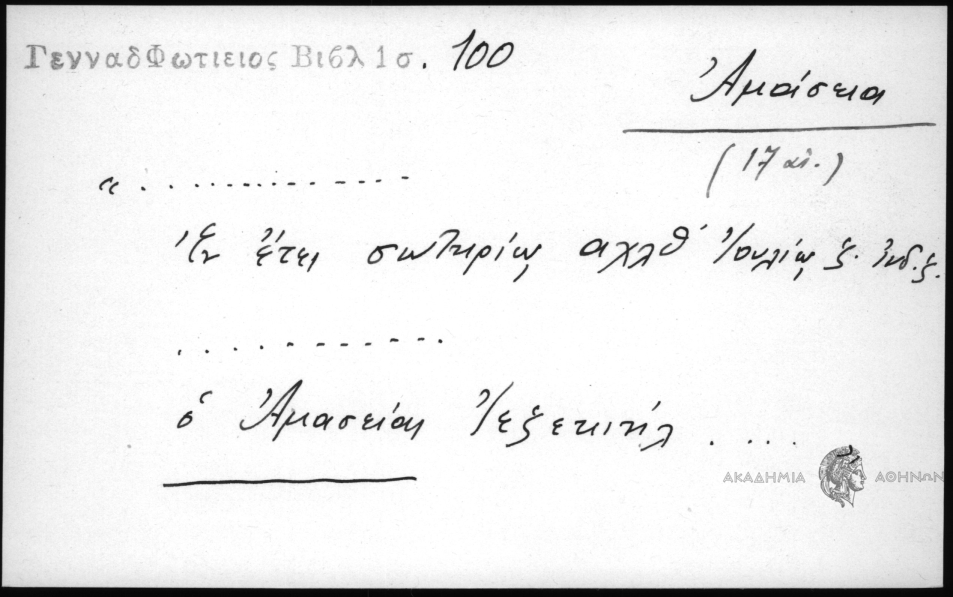 Γενναδ Φωτιειος Βιβλ 1 σ. 100
Ἀμάσεια
(17 αἰ.)
« . . . . . . . . . . . . . . . .
Ἐν ἔτει σωτηρίῳ αχλθ' Ἰουλίῳ ξ. ἰνδ. ξ.
. . . . . . . . . . . . .
ὁ Ἀμασείας Ἰεζεκιήλ . . . . »
ΑΚΑΔΗΜΙΑ ΑΘΗΝΩΝ